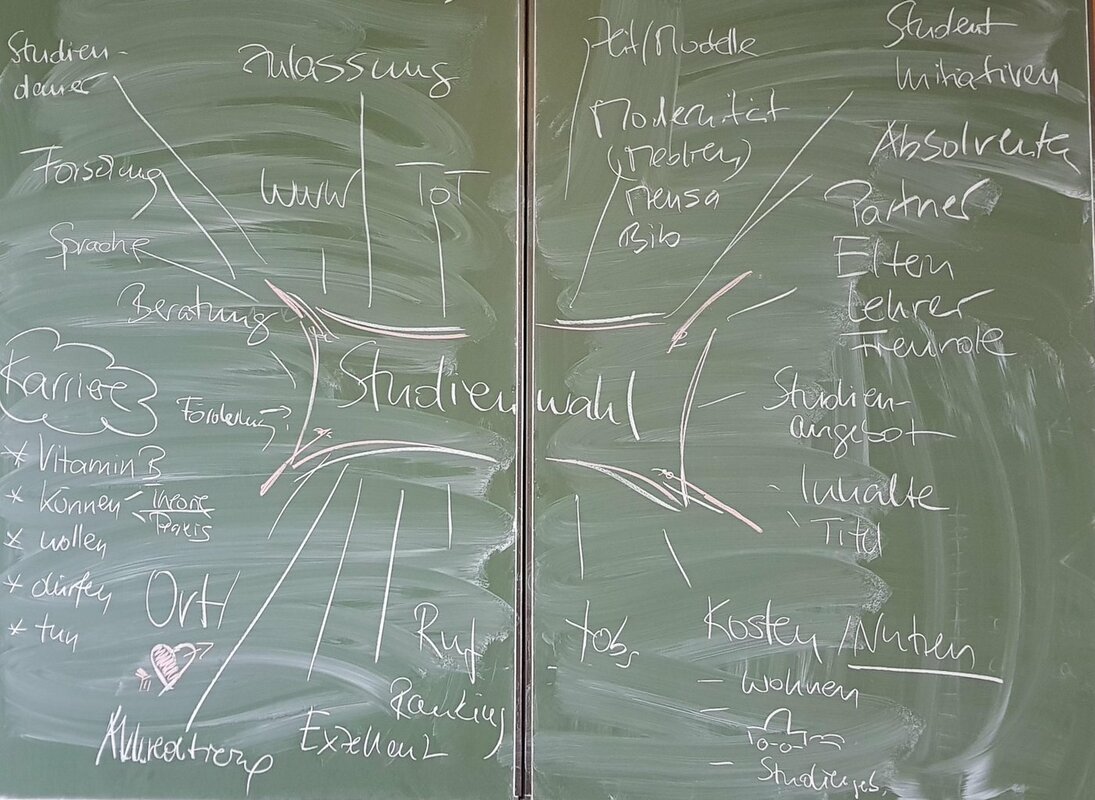 Studien-
dauer
Zulassung
Forschung
WWW
ToT
Sprache
Beratung
Karriere
Förderung?
* Vitamin B
* können
Theorie
Praxis
* wollen
* dürfen
* tun
Ort
Akkreditierung
Exzellenz
Ruf
Ranking
Studienwahl
Zeit/Modelle
Modernität
(Medien)
Mensa
Bibo
Student
Initiativen
Absolventen
Partner
Eltern
Lehrer
Freunde
Studien-
angebot
- Inhalte
Titel
Jobs
Kosten/Nutzen
- Wohnen
-
- Studiengeb.